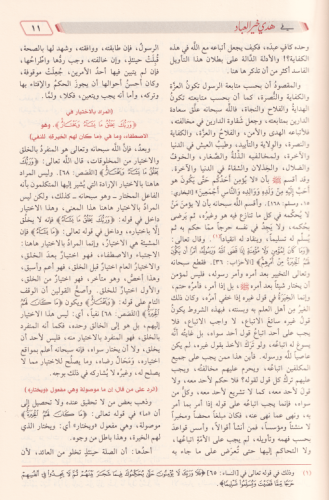 في هدي خير العباد
١١
وحده كافي عبده، فكيف يجعل أتباعه مع الله في هذه
الكفاية؟! والأدلة الدالة على بطلان هذا التأويل
الفاسد أكثر من أن تذكر ها هنا.
والمقصود أن بحسب متابعة الرسول تكون العزة
والكفاية والنصرة، كما أن بحسب متابعته تكون
الهداية والفلاح والنجاة، فالله سبحانه علق سعادة
الدارين بمتابعته، وجعل شقاوة الدارين في مخالفته،
فلأتباعه الهدى والأمن، والفلاح والعزة، والكفاية
والنصرة، والولاية والتأييد، وطيب العيش في الدنيا
والآخرة، ولمخالفيه الذلة والصغار، والخوف
والضلال، والخذلان والشقاء في الدنيا والآخرة.
وقد أقسم ﷺ بأن «لا يؤمن أحدكم حتى يكون هو
أحب إليه من ولده ووالده والناس أجمعين» [البخاري:
١٥، مسلم: ١٦٨]، وأقسم الله سبحانه بأن لا يؤمن من
لا يحكمه في كل ما تنازع فيه هو وغيره، ثم يرضى
بحكمه، ولا يجد في نفسه حرجا مما حكم به ثم
يسلم له تسليما، وينقاد له انقيادا(١). وقال تعالى:
﴿وما كان لمؤمن ولا مؤمنة إذا قضى الله ورسوله أمرا أن يكون لهم
الخيرة من أمرهم﴾ [الأحزاب: ٣٦]. فقطع سبحانه
وتعالى التخيير بعد أمره وأمر رسوله، فليس لمؤمن
أن يختار شيئا بعد أمره ﷺ، بل إذا أمر، فأمره حتم،
وإنما الخيرة في قول غيره إذا خفي أمره، وكان ذلك
الغير من أهل العلم به وبسنته، فبهذه الشروط يكون
قول غيره سائغ الاتباع، لا واجب الاتباع، فلا
يجب على أحد اتباع قول أحد سواه، بل غايته أنه
يسوغ له اتباعه، ولو ترك الأخذ بقول غيره، لم يكن
عاصيا لله ورسوله. فأين هذا ممن يجب على جميع
المكلفين اتباعه، ويحرم عليهم مخالفته، ويجب
عليهم ترك كل قول لقوله؟ فلا حكم لأحد معه، ولا
قول لأحد معه، كما لا تشريع لأحد معه، وكل من
سواه، فإنما يجب اتباعه على قوله إذا أمر بما أمر
به، ونهى عما نهى عنه، فكان مبلغا محضا ومخبرا
لا منشئا ومؤسسا، فمن أنشأ أقوالا، وأسس قواعد
بحسب فهمه وتأويله، لم يجب على الأمة اتباعها،
ولا التحاكم إليها حتى تعرض على ما جاء به
الرسول، فإن طابقته، ووافقته، وشهد لها بالصحة،
قبلت حينئذ، وإن خالفته، وجب ردها واطراحها،
فإن لم يتبين فيها أحد الأمرين، جعلت موقوفة،
وكان أحسن أحوالها أن يجوز الحكم والإفتاء بها
وتركه، وأما أنه يجب ويتعين، فكلا، ولما.
(المراد بالاختيار في
﴿وربك يخلق ما يشاء ويختار﴾، وهو
الاصطفاء، وما في «ما كان لهم الخيرة» للنفي)
وبعد، فإن الله سبحانه وتعالى هو المنفرد بالخلق
والاختيار من المخلوقات، قال الله تعالى: ﴿وربك
يخلق ما يشاء ويختار﴾ [القصص: ٦٨]، وليس المراد
ها هنا بالاختيار الإرادة التي يشير إليها المتكلمون بأنه
الفاعل المختار ـ وهو سبحانه ـ كذلك، ولكن ليس
المراد بالاختيار ها هنا هذا المعنى، وهذا الاختيار
داخل في قوله: ﴿يخلق ما يشاء﴾ فإنه لا يخلق
إلا باختياره، وداخل في قوله تعالى: ﴿ما يشاء﴾ فإن
المشيئة هي الاختيار، وإنما المراد بالاختيار ها هنا:
الاجتباء والاصطفاء، فهو اختيار بعد الخلق،
والاختيار العام اختيار قبل الخلق، فهو أعم وأسبق،
وهذا أخص، وهو متأخر، فهو اختيار من الخلق،
والأول اختيار للخلق. وأصح القولين أن الوقف
التام على قوله: ﴿ويختار﴾ ويكون ﴿ما كان لهم
الخيرة﴾ [القصص: ٦٨] نفيا، أي: ليس هذا الاختيار
إليهم، بل هو إلى الخالق وحده، فكما أنه المنفرد
بالخلق، فهو المنفرد بالاختيار منه، فليس لأحد أن
يخلق، ولا أن يختار سواه، فإنه سبحانه أعلم بمواقع
اختياره، ومحال رضاه، وما يصلح للاختيار مما لا
يصلح له، وغيره لا يشاركه في ذلك بوجه.
(الرد على من قال: إن ما موصولة وهي مفعول «ويختار»)
وذهب بعض من لا تحقيق عنده ولا تحصيل إلى
أن «ما» في قوله تعالى: ﴿ما كان لهم الخيرة﴾
موصولة، وهي مفعول «ويختار» أي: ويختار الذي
لهم الخيرة، وهذا باطل من وجوه.
(١) وذلك في قوله تعالى في [النساء: ٦٥] ﴿فلا وربك لا يؤمنون حتى يحكموك فيما شجر بينهم ثم لا يجدوا في أنفسهم
حرجا مما قضيت ويسلموا تسليما﴾.